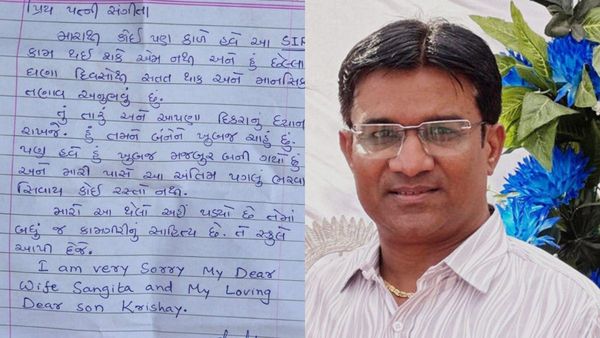 પ્રિય પત્ની સંગીતા
મારાથી કોઈ પણ કાળે હવે આ SIR
કામ થઈ શકે એમ નથી અને હું છેલ્લા
ઘણા દિવસોથી સતત થાક અને માનસિક
તણાવ અનુભવું છું.
તું તારું અને આપણા દિકરાનું ધ્યાન
રાખજે. હું તમને બંનેને ખુબજ ચાહું છું.
પણ હવે હું ખુબજ મજબુર બની ગયો છું
અને મારી પાસે આ અંતિમ પગલું ભરવા
સિવાય કોઈ રસ્તો નથી.
મારો આ થેલો અહીં પડ્યો છે તેમાં
બધું જ કામગીરીનું સાહિત્ય છે. તે સ્કુલે
આપી દેજે.
I am very sorry My Dear
Wife Sangita and My Loving
Dear son Krishay.